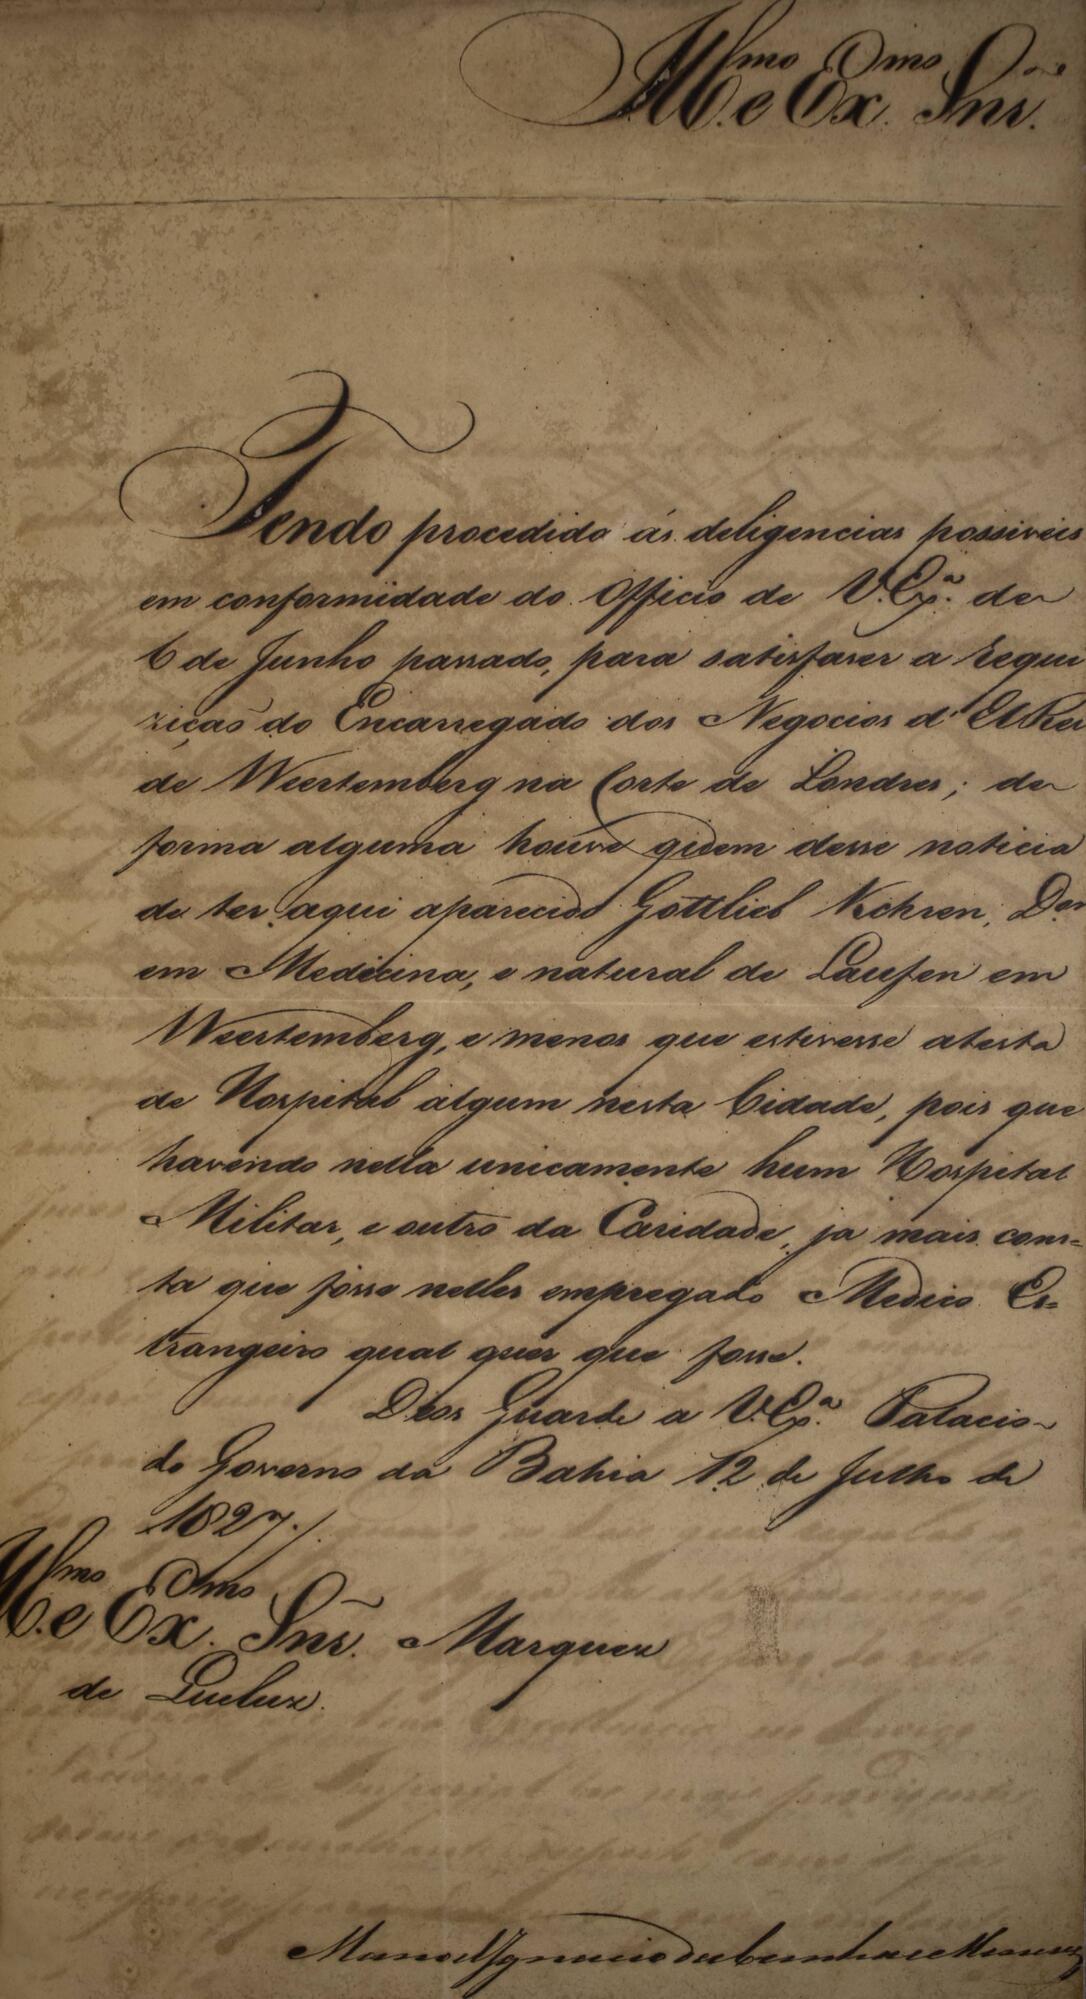 Ill.mo e Ex.mo Snr.
Tendo procedido ás deligencias possiveis
em conformidade do Officio de V. Ex.ª de
6 de Junho passado, para satisfazer a requi
zição do Encarregado dos Negocios d'ElRei
de Weertemberg na Corte de Londres; de
forma alguma houve quem desse noticia
de ter aqui aparecido Gottlieb Kehren, Dor
em Medicina, e natural de Laufen em
Weertemberg, e menos que estivesse atesta
de Hospital algum nesta Cidade, pois que
havendo nella unicamente hum Hospital
Militar, e outro da Caridade, ja mais cons=
ta que fosse nelles empregado Medico Es=
trangeiro qual quer que fosse.
Deos Guarde a V. Ex.ª Palacio
do Governo da Bahia 12 de Julho de
1827.
Ill.mo e Ex.mo Snr. Marquez
de Queluz.
Manoel Ignacio da Cunha e Menezes